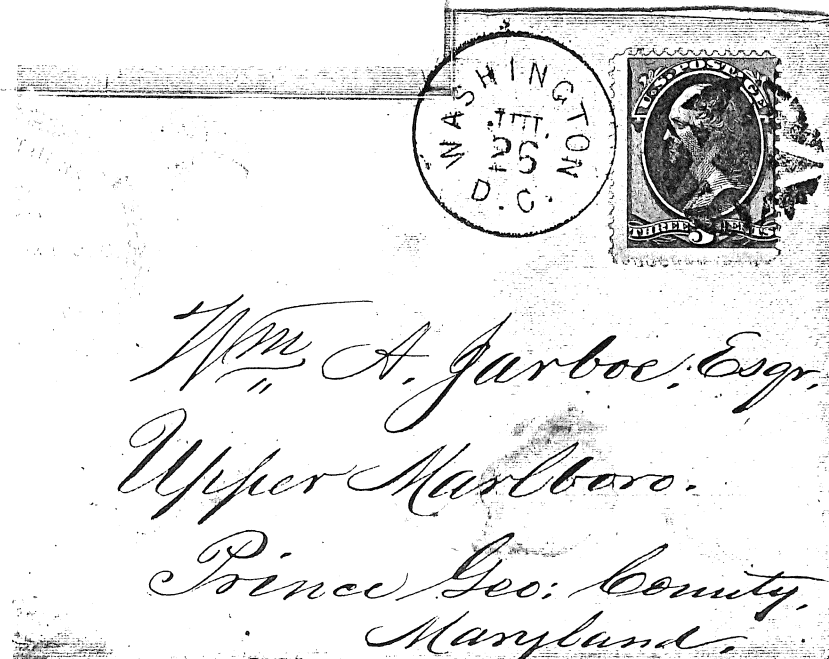 WASHINGTON
26
D.C.
U.S. POSTAGE
THREE 3 CENTS
Wm A. Jarboe, Esqr,
Upper Marlboro.
Prince Geo: County,
Maryland.